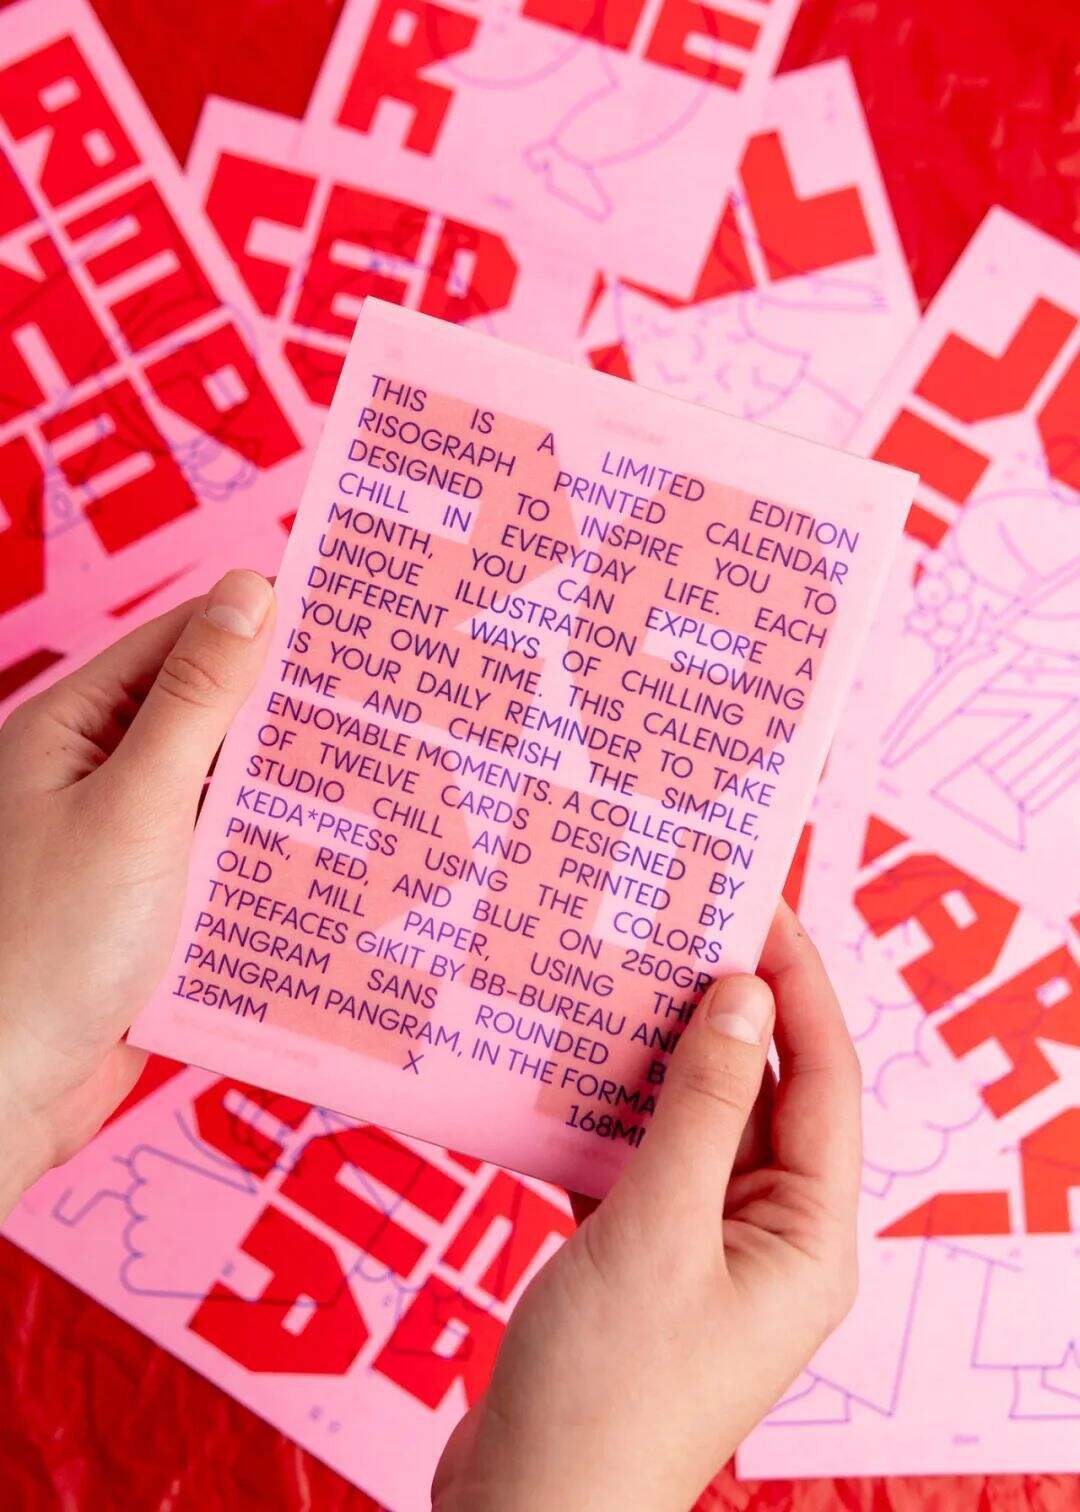 THIS IS A LIMITED EDITION
RISOGRAPH PRINTED CALENDAR
DESIGNED TO INSPIRE YOU TO
CHILL IN EVERYDAY LIFE. EACH
MONTH, YOU CAN EXPLORE A
UNIQUE ILLUSTRATION SHOWING
DIFFERENT WAYS OF CHILLING IN
YOUR OWN TIME. THIS CALENDAR
IS YOUR DAILY REMINDER TO TAKE
TIME AND CHERISH THE SIMPLE,
ENJOYABLE MOMENTS. A COLLECTION
OF TWELVE CARDS DESIGNED BY
STUDIO CHILL AND PRINTED BY
KEDA*PRESS USING THE COLORS
PINK, RED, AND BLUE ON 250GR
OLD MILL PAPER, USING THE
TYPEFACES GIKIT BY BB-BUREAU AND
PANGRAM SANS ROUNDED B
PANGRAM PANGRAM, IN THE FORMA
125MM X 168MM